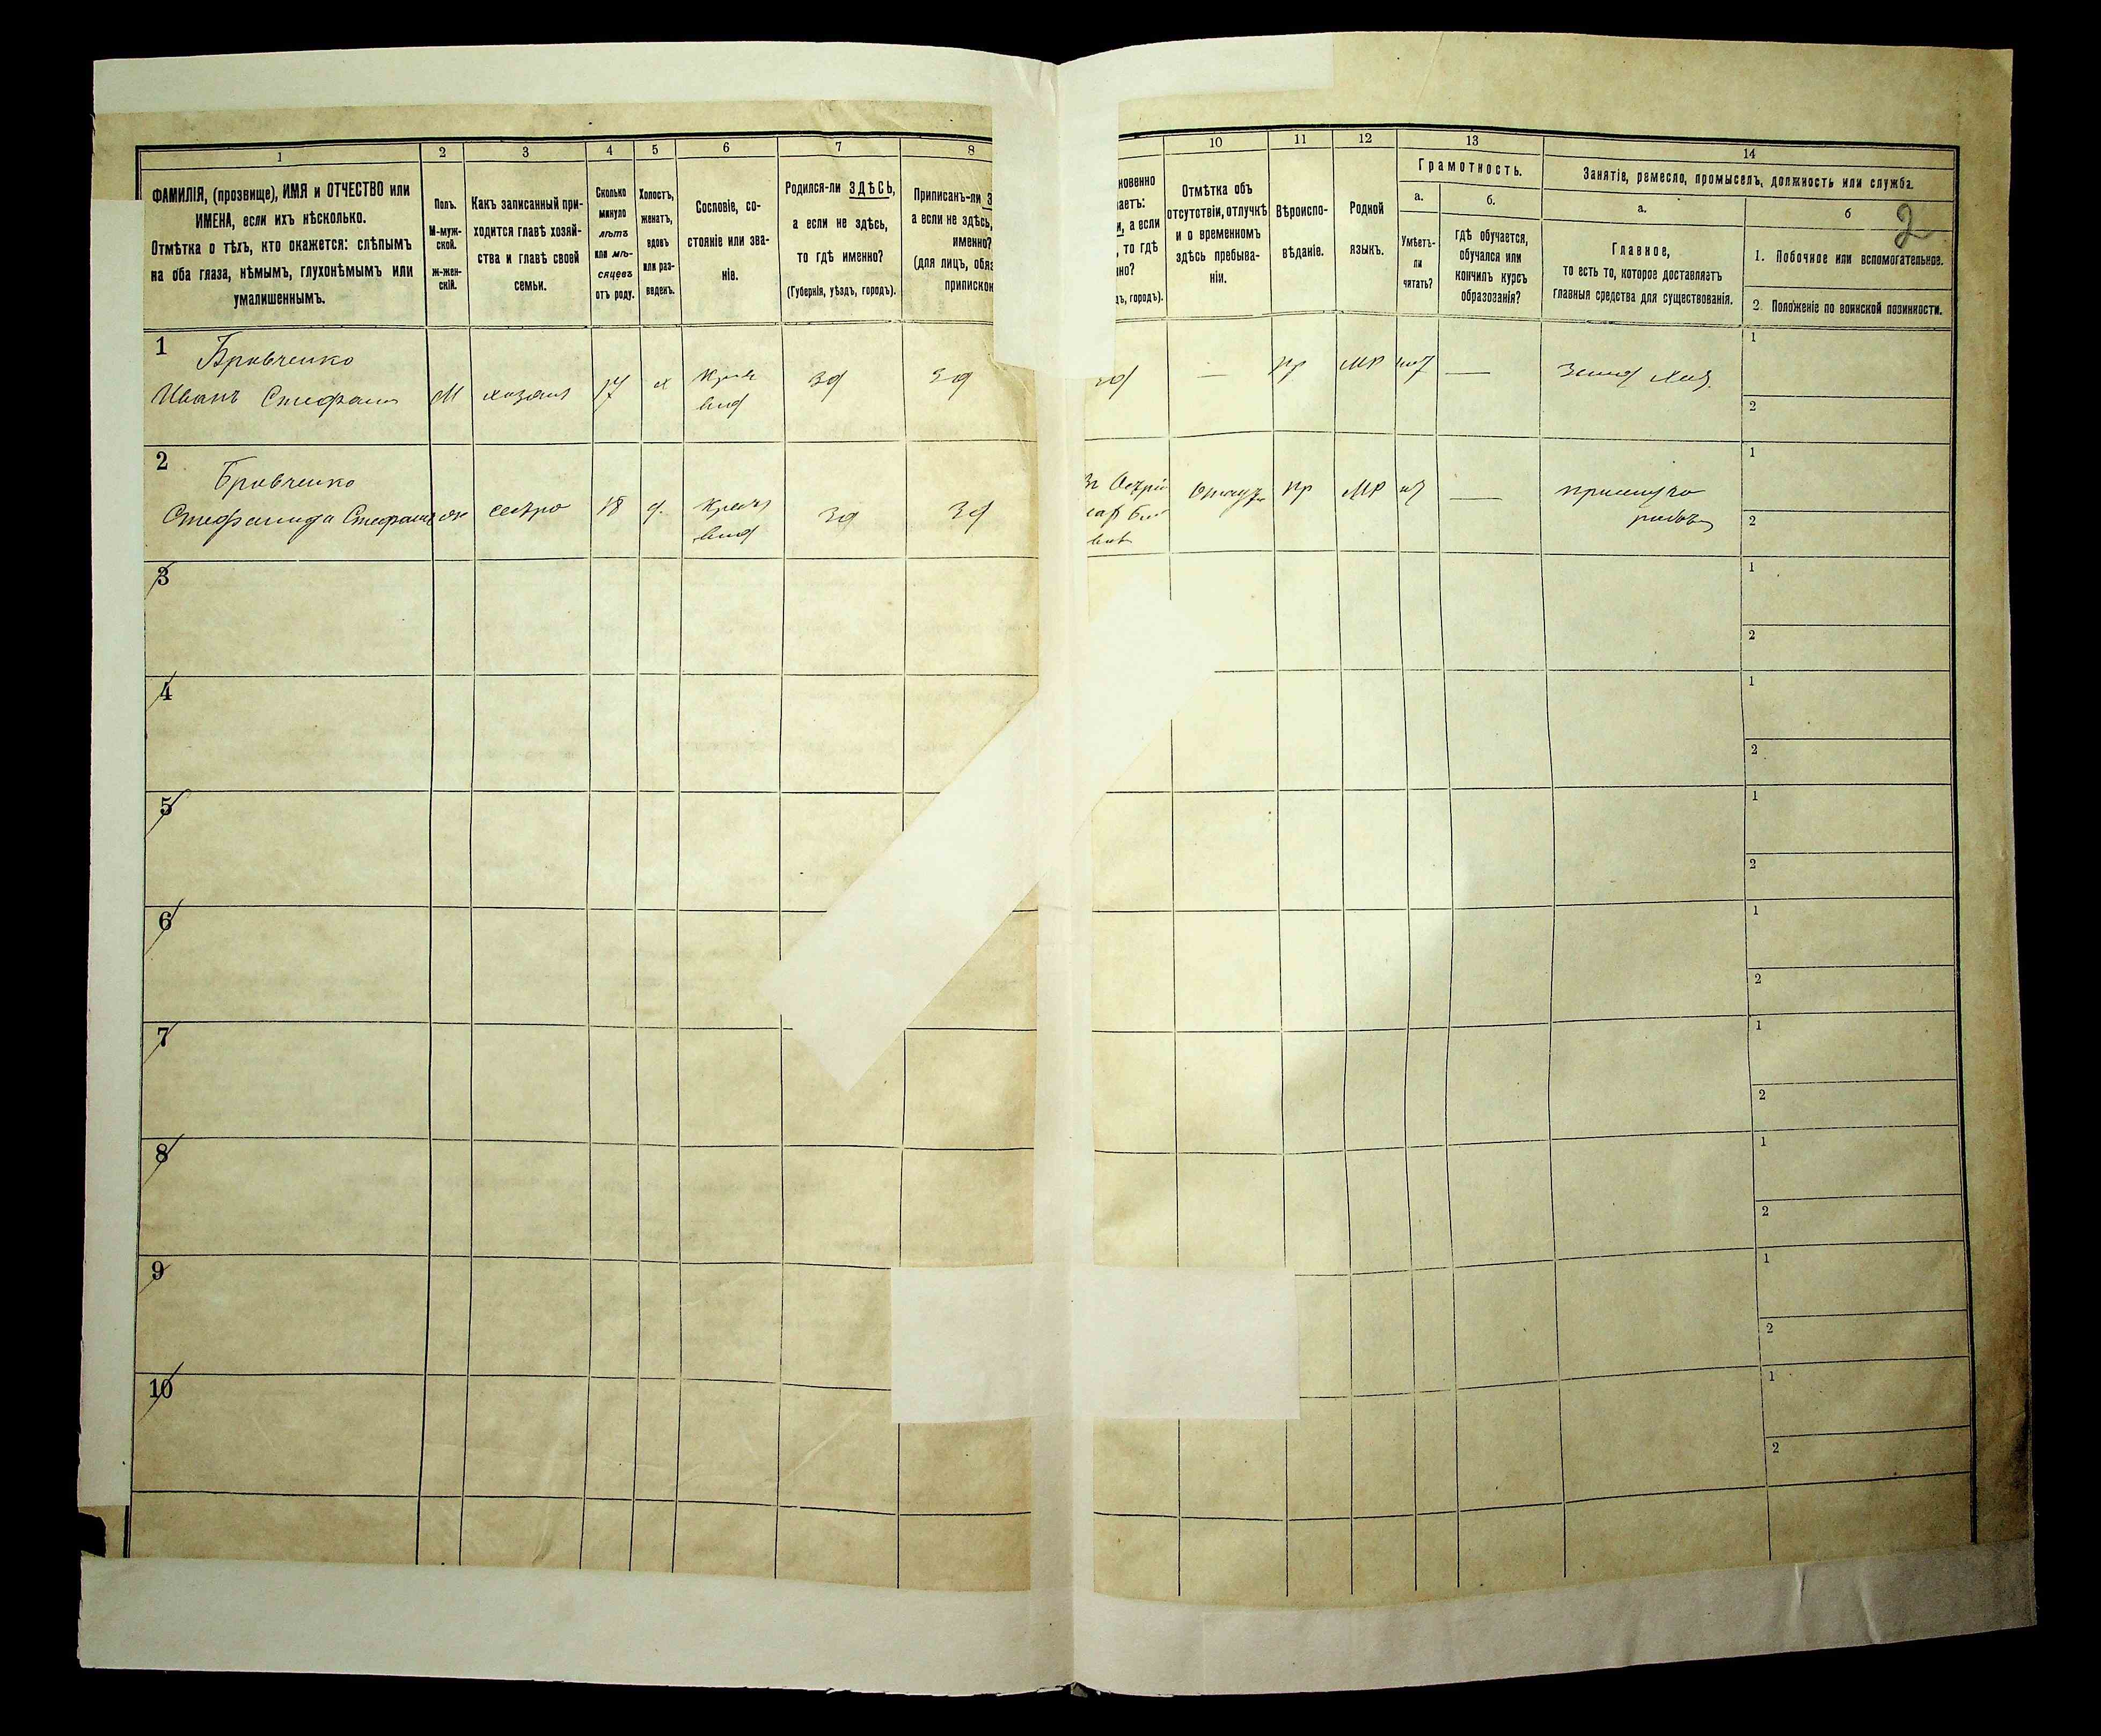 1 2 3 4 5 6 7 8
ФАМИЛІЯ, (прозвище), ИМЯ и ОТЧЕСТВО или
ИМЕНА, если ихъ нѣсколько.
Отмѣтка о тѣхъ, кто окажется: слѣпымъ
на оба глаза, нѣмымъ, глухонѣмымъ или
умалишеннымъ.
Полъ.
М-муж-
ской.
ж-жен-
скій.
Какъ записанный при-
ходится главѣ хозяй-
ства и главѣ своей
семьи.
Сколько
минуло
лѣтъ
или мѣ-
сяцевъ
отъ роду.
Холостъ,
женатъ,
вдовъ
или раз-
веденъ.
Сословіе, со-
стояніе или зва-
ніе.
Родился-ли ЗДѢСЬ,
а если не здѣсь,
то гдѣ именно?
(Губернія, уѣздъ, городъ).
Приписанъ-ли З
а если не здѣсь,
именно?
(для лицъ, обяз
припиской
10 11 12 13 14
новенно
аетъ:
и, а если
, то гдѣ
но?
дъ, городъ).
Отмѣтка объ
отсутствіи, отлучкѣ
и о временномъ
здѣсь пребыва-
ніи.
Вѣроиспо-
вѣданіе.
Родной
языкъ.
Грамотность.
а.
Умѣетъ-
ли
читать?
б.
гдѣ обучается,
обучался или
кончилъ курсъ
образованія?
Занятіе, ремесло, промыселъ, должность или служба.
а.
Главное,
то есть то, которое доставляетъ
главныя средства для существованія.
б
2
1. Побочное или вспомогательное.
2 Положеніе по воинской повинности.
1 Бровченко
Иванъ Стефан М хозяин 17 х зд зд зд — пр МР нѣт —
1
2
2 Бровченко
Стефанида Стефан ж сестра 18 д. зд зд пр МР —
1
2
3
1
2
4
1
2
5
1
2
6
1
2
7
1
2
8
1
2
9
1
2
10
1
2